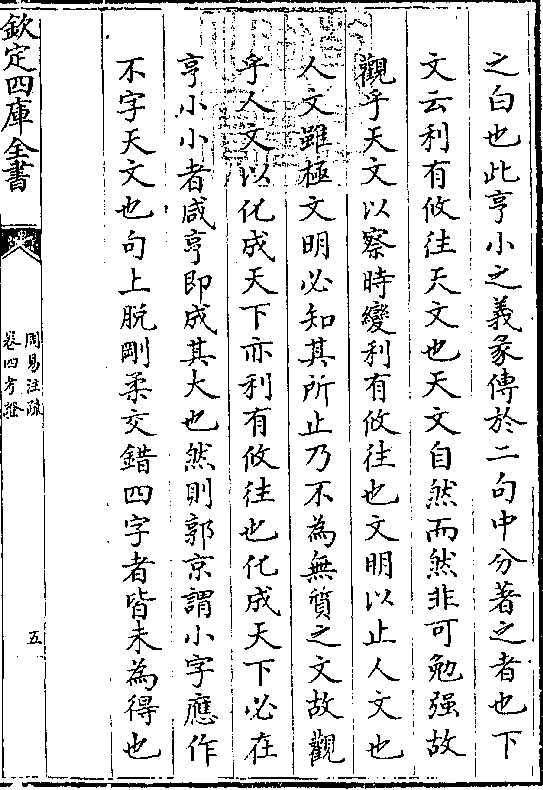 之白也此亨小之義彖傳於二句中分著之者也下
文云利有攸往天文也天文自然而然非可勉强故
觀乎天文以察時變利有攸往也文明以止人文也
人文雖極文明必知其所止乃不為無質之文故觀
乎人文以化成天下亦利有攸往也化成天下必在
亨小小者咸亨即成其大也然則郭京謂小字應作
不字天文也句上脫剛柔交錯四字者皆未為得也
欽定四庫全書
周易注疏
卷四考證
五